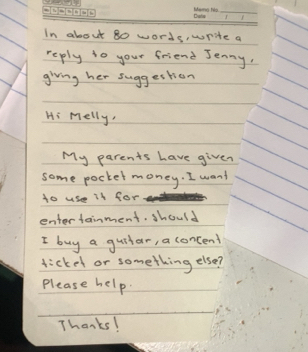 Memo No.
Date / /
In about 80 words, write a
reply to your friend Jenny,
giving her suggestion
Hi Melly,
My parents have given
some pocket money. I want
to use it for
entertainment. Should
I buy a guitar, a concent
ticket or something else?
Please help.
Thanks!